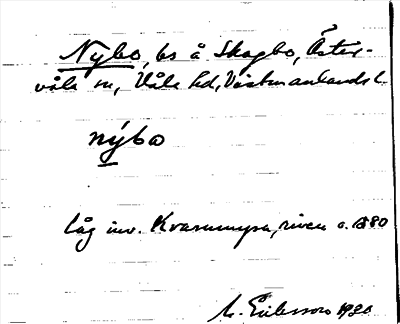 Nybo, bs å Skogbo, Öster-
våla sn, Våla hd, Västmanlands l.
nýbo
låg inv. Kvarnmyra, riven c. 1880
M. Eriksson 1930